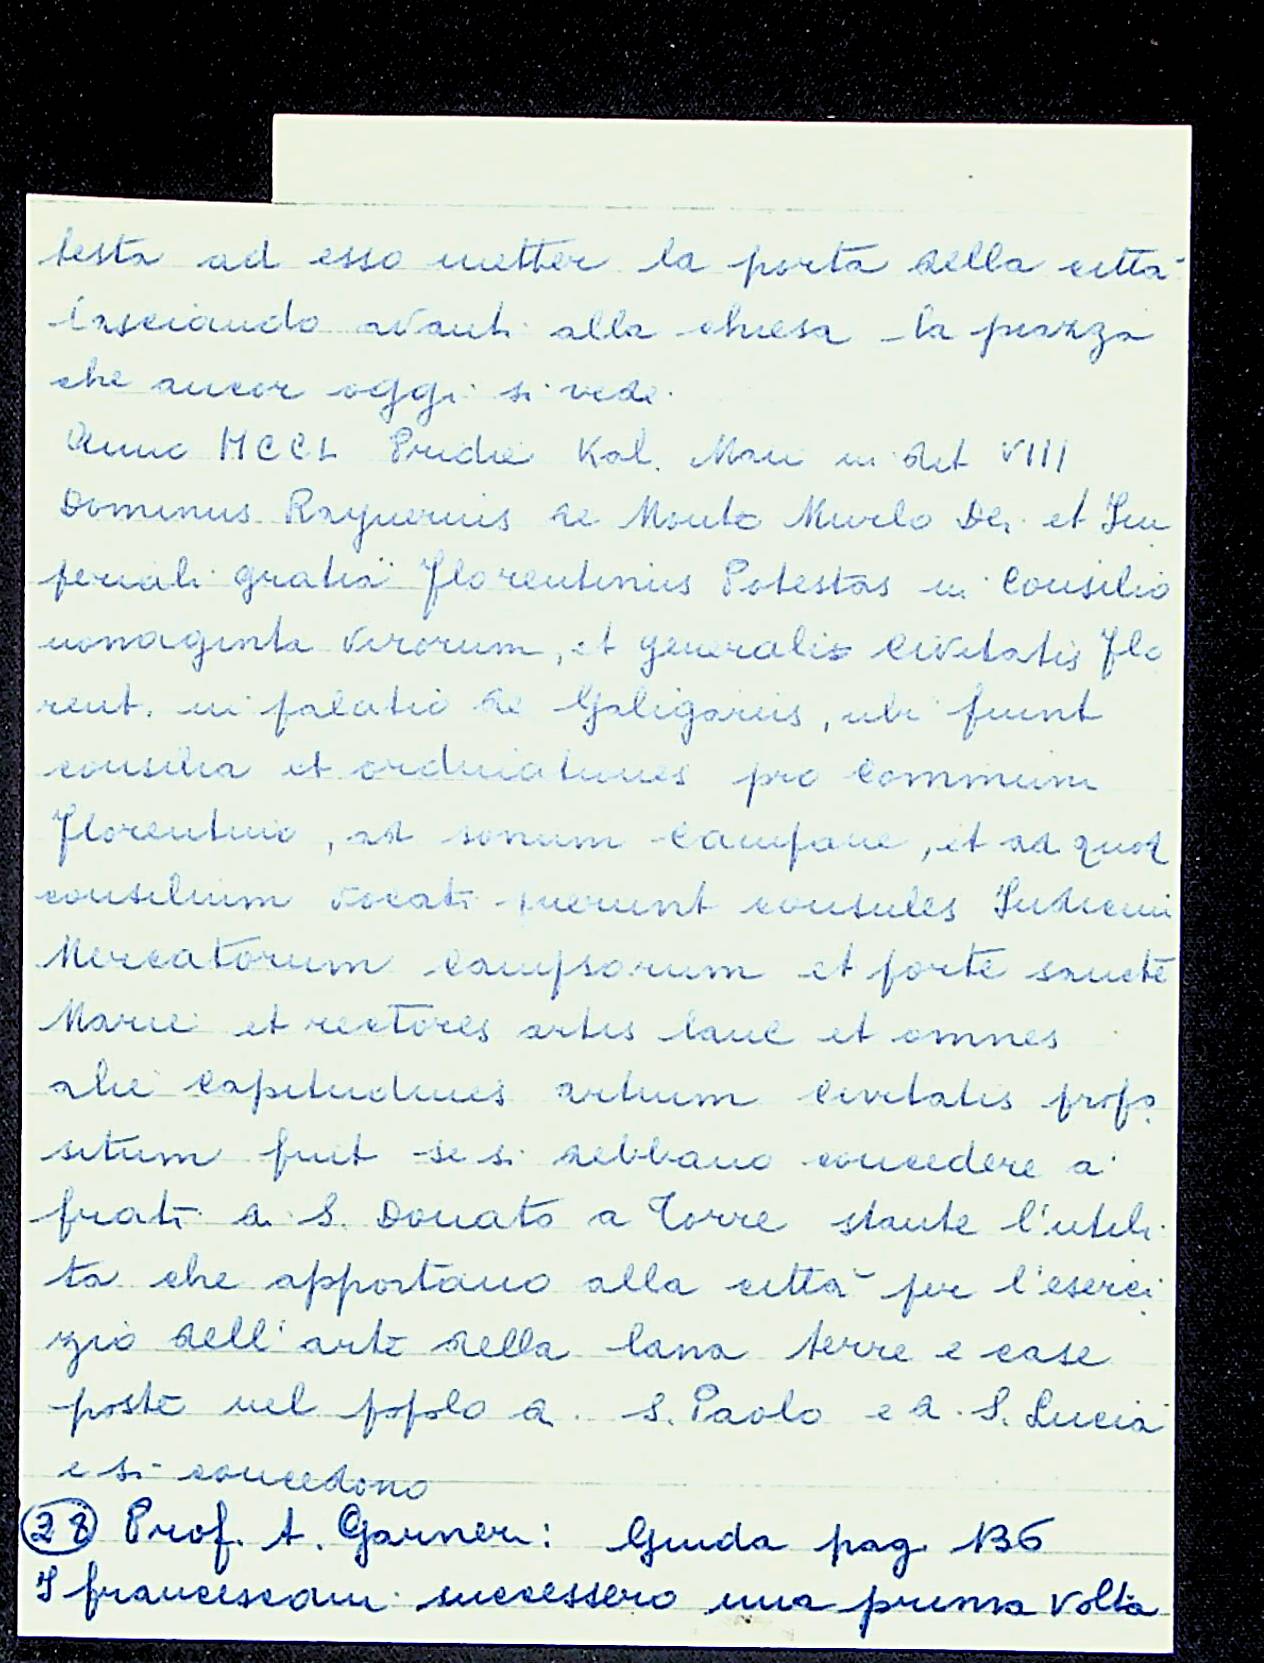 testa ad esso metter la porta della città
lasciando avanti alla chiesa la piazza
che ancor oggi si vede.
Anno MCCL Pridie Kal. Maii in det VIII
Dominus Raynerius de Monte Murlo Dei et Im
periali gratia Florentinus Potestas in Consilio
nonaginta virorum, et generalis Civitatis Flo
rent. in palatio de Galigariis, ubi fiunt
consilia et ordinationes pro Commum
Florentino, ad sonum campane, et ad quod
consilium vocati fuerunt consules Iudicum
Mercatorum campsorum et porte sancte
Marie et rectores artis lane et omnes
alie capitudines artium Civitatis propo
situm fuit se si debbano concedere a'
frati d. S. Donato a Torre stante l'utili
ta che apportano alla città per l'eserci
zio dell'arte della lana terre e case
poste nel popolo d. S. Paolo e d. S. Lucia
e si concedono
(28) Prof. A. Garneri: Guida pag. 136
I francescani successero una prima volta